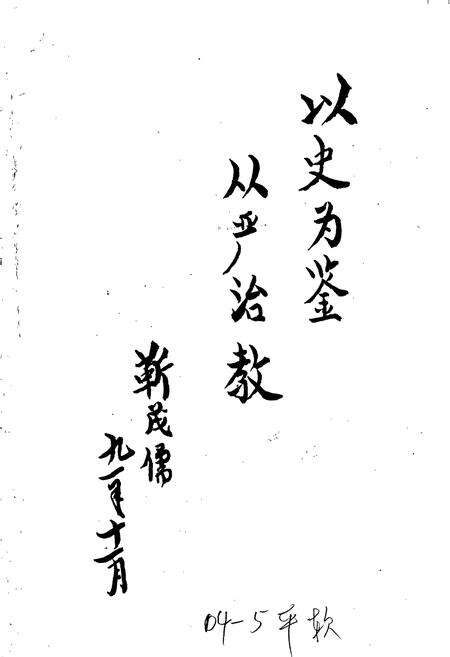 以史为鉴
从严治教
靳茂儒
九一年十一月
04-5平软